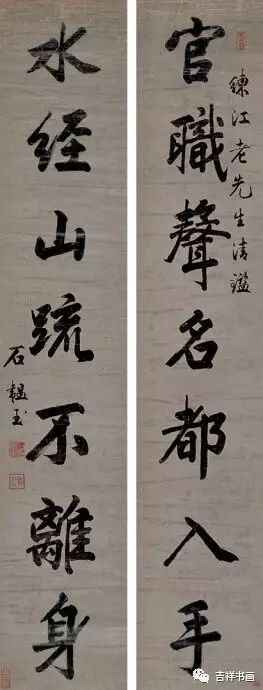 官職聲名都入手
練江老先生清鑑
水经山疏不離身
石韞玉
吉祥书画